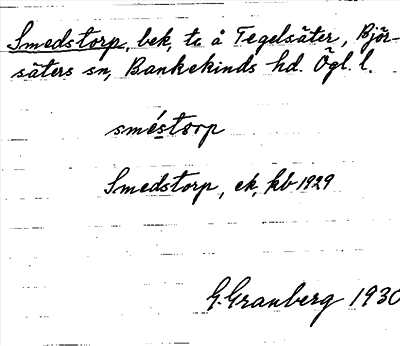 Smedstorp, bek, to å Tegelsäter, Björ-
säters sn, Bankekinds hd. Ögl. l.
sméstorp
Smedstorp, ek, kb 1929
G. Granberg 1930